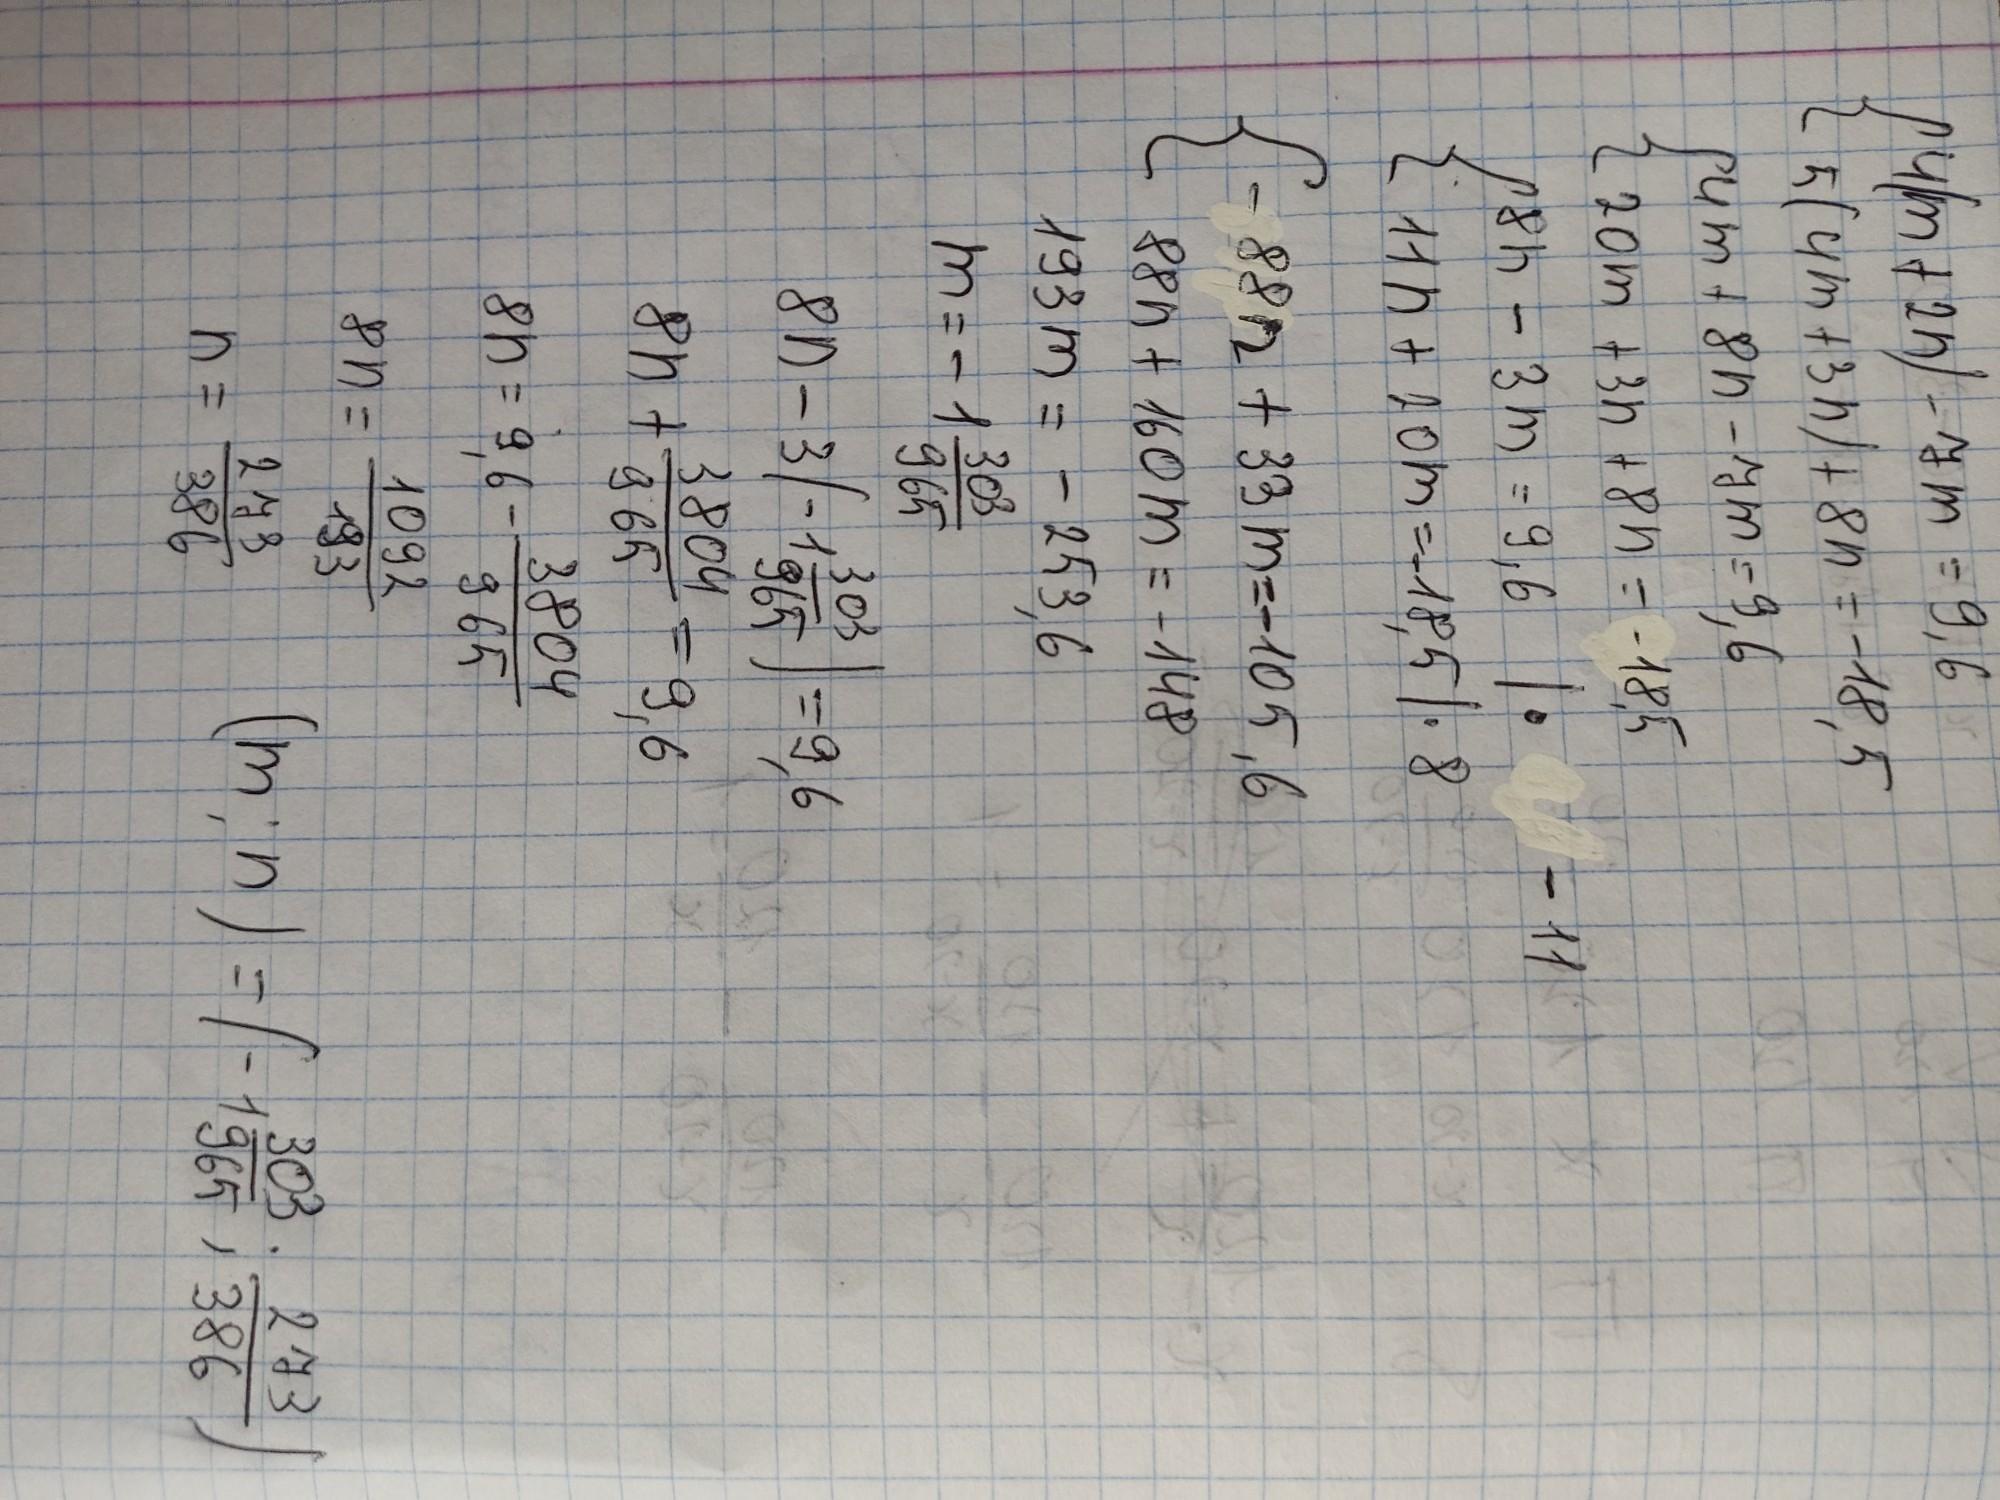 { 4(m + 2n) - 7m = 9,6
{ 5(4m + 3n) + 8n = -18,5
{ 4m + 8n - 7m = 9,6
{ 20m + 3n + 8n = -18,5
{ 8n - 3m = 9,6 | · -11
{ 11n + 20m = -18,5 | · 8
{ -88n + 33m = -105,6
{ 88n + 160m = -148
193m = -253,6
m = -1 303/965
8n - 3(-1 303/965) = 9,6
8n + 3804/965 = 9,6
8n = 9,6 - 3804/965
8n = 1092/193
n = 273/386
(m; n) = (-1 303/965; 273/386)